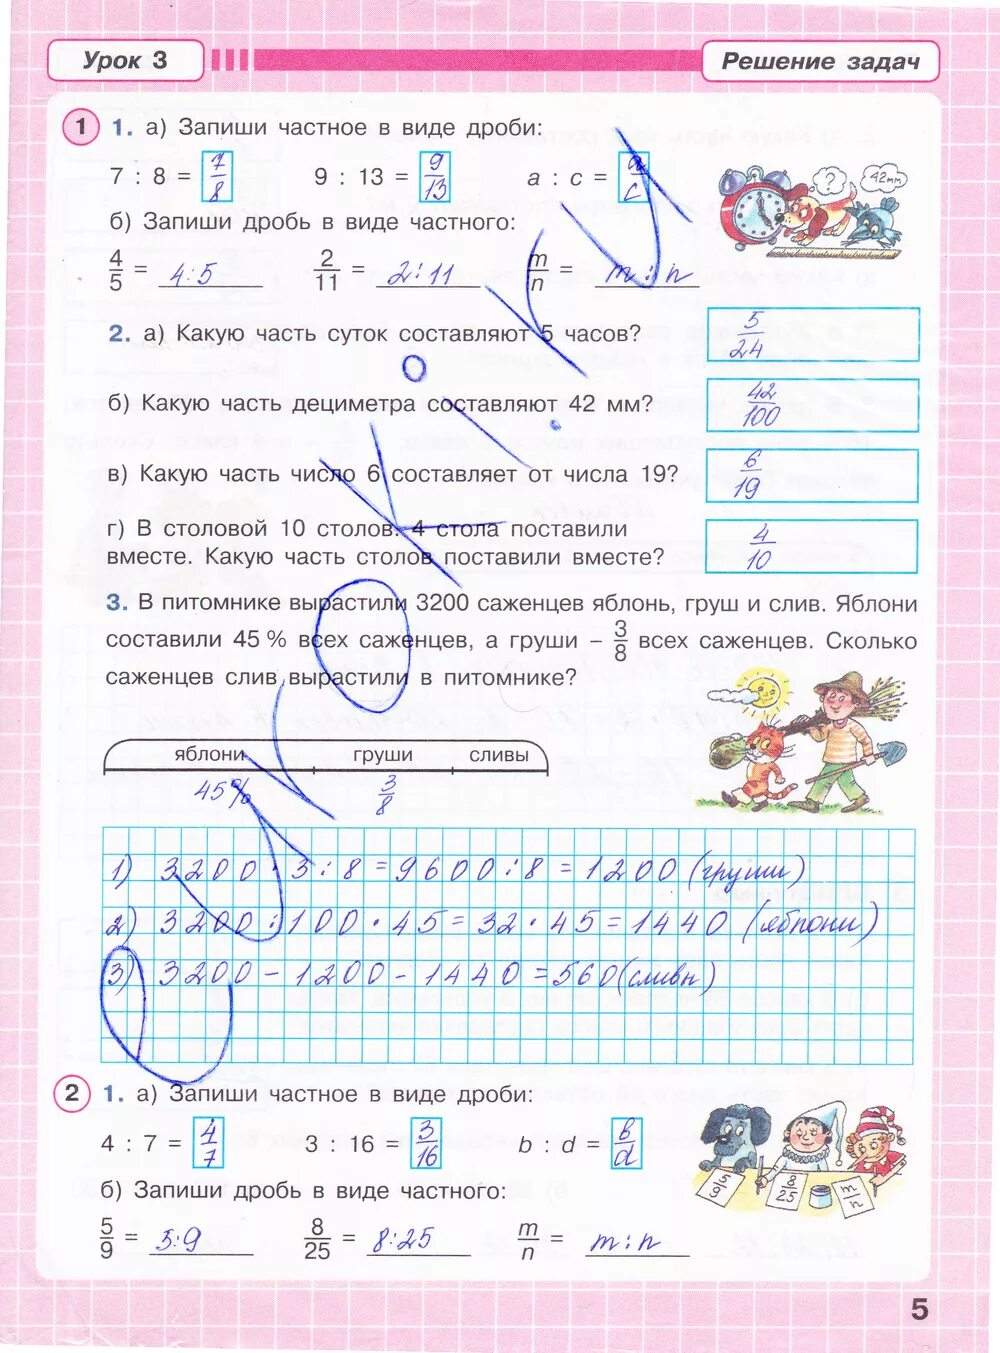 Урок 3
Решение задач
1 1. а) Запиши частное в виде дроби:
7 : 8 = 7/8 9 : 13 = 9/13 a : c = a/c
? 42 мм
б) Запиши дробь в виде частного:
4/5 = 4:5 2/11 = 2:11 m/n = m:n
2. а) Какую часть суток составляют 5 часов? 5/24
б) Какую часть дециметра составляют 42 мм? 42/100
в) Какую часть число 6 составляет от числа 19? 6/19
г) В столовой 10 столов. 4 стола поставили
вместе. Какую часть столов поставили вместе? 4/10
3. В питомнике вырастили 3200 саженцев яблонь, груш и слив. Яблони
составили 45 % всех саженцев, а груши – 3/8 всех саженцев. Сколько
саженцев слив вырастили в питомнике?
яблони груши сливы
45% 3/8
1) 3200 · 3 : 8 = 9600 : 8 = 1200 (груши)
2) 3200 : 100 · 45 = 32 · 45 = 1440 (яблони)
3) 3200 - 1200 - 1440 = 560 (сливы)
2 1. а) Запиши частное в виде дроби:
4 : 7 = 4/7 3 : 16 = 3/16 b : d = b/d
б) Запиши дробь в виде частного:
5/9 8/25 m/n
5/9 = 5:9 8/25 = 8:25 m/n = m:n
5